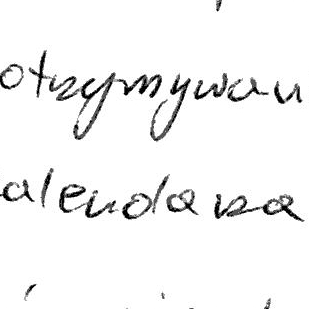 otrzymywan
alendarza